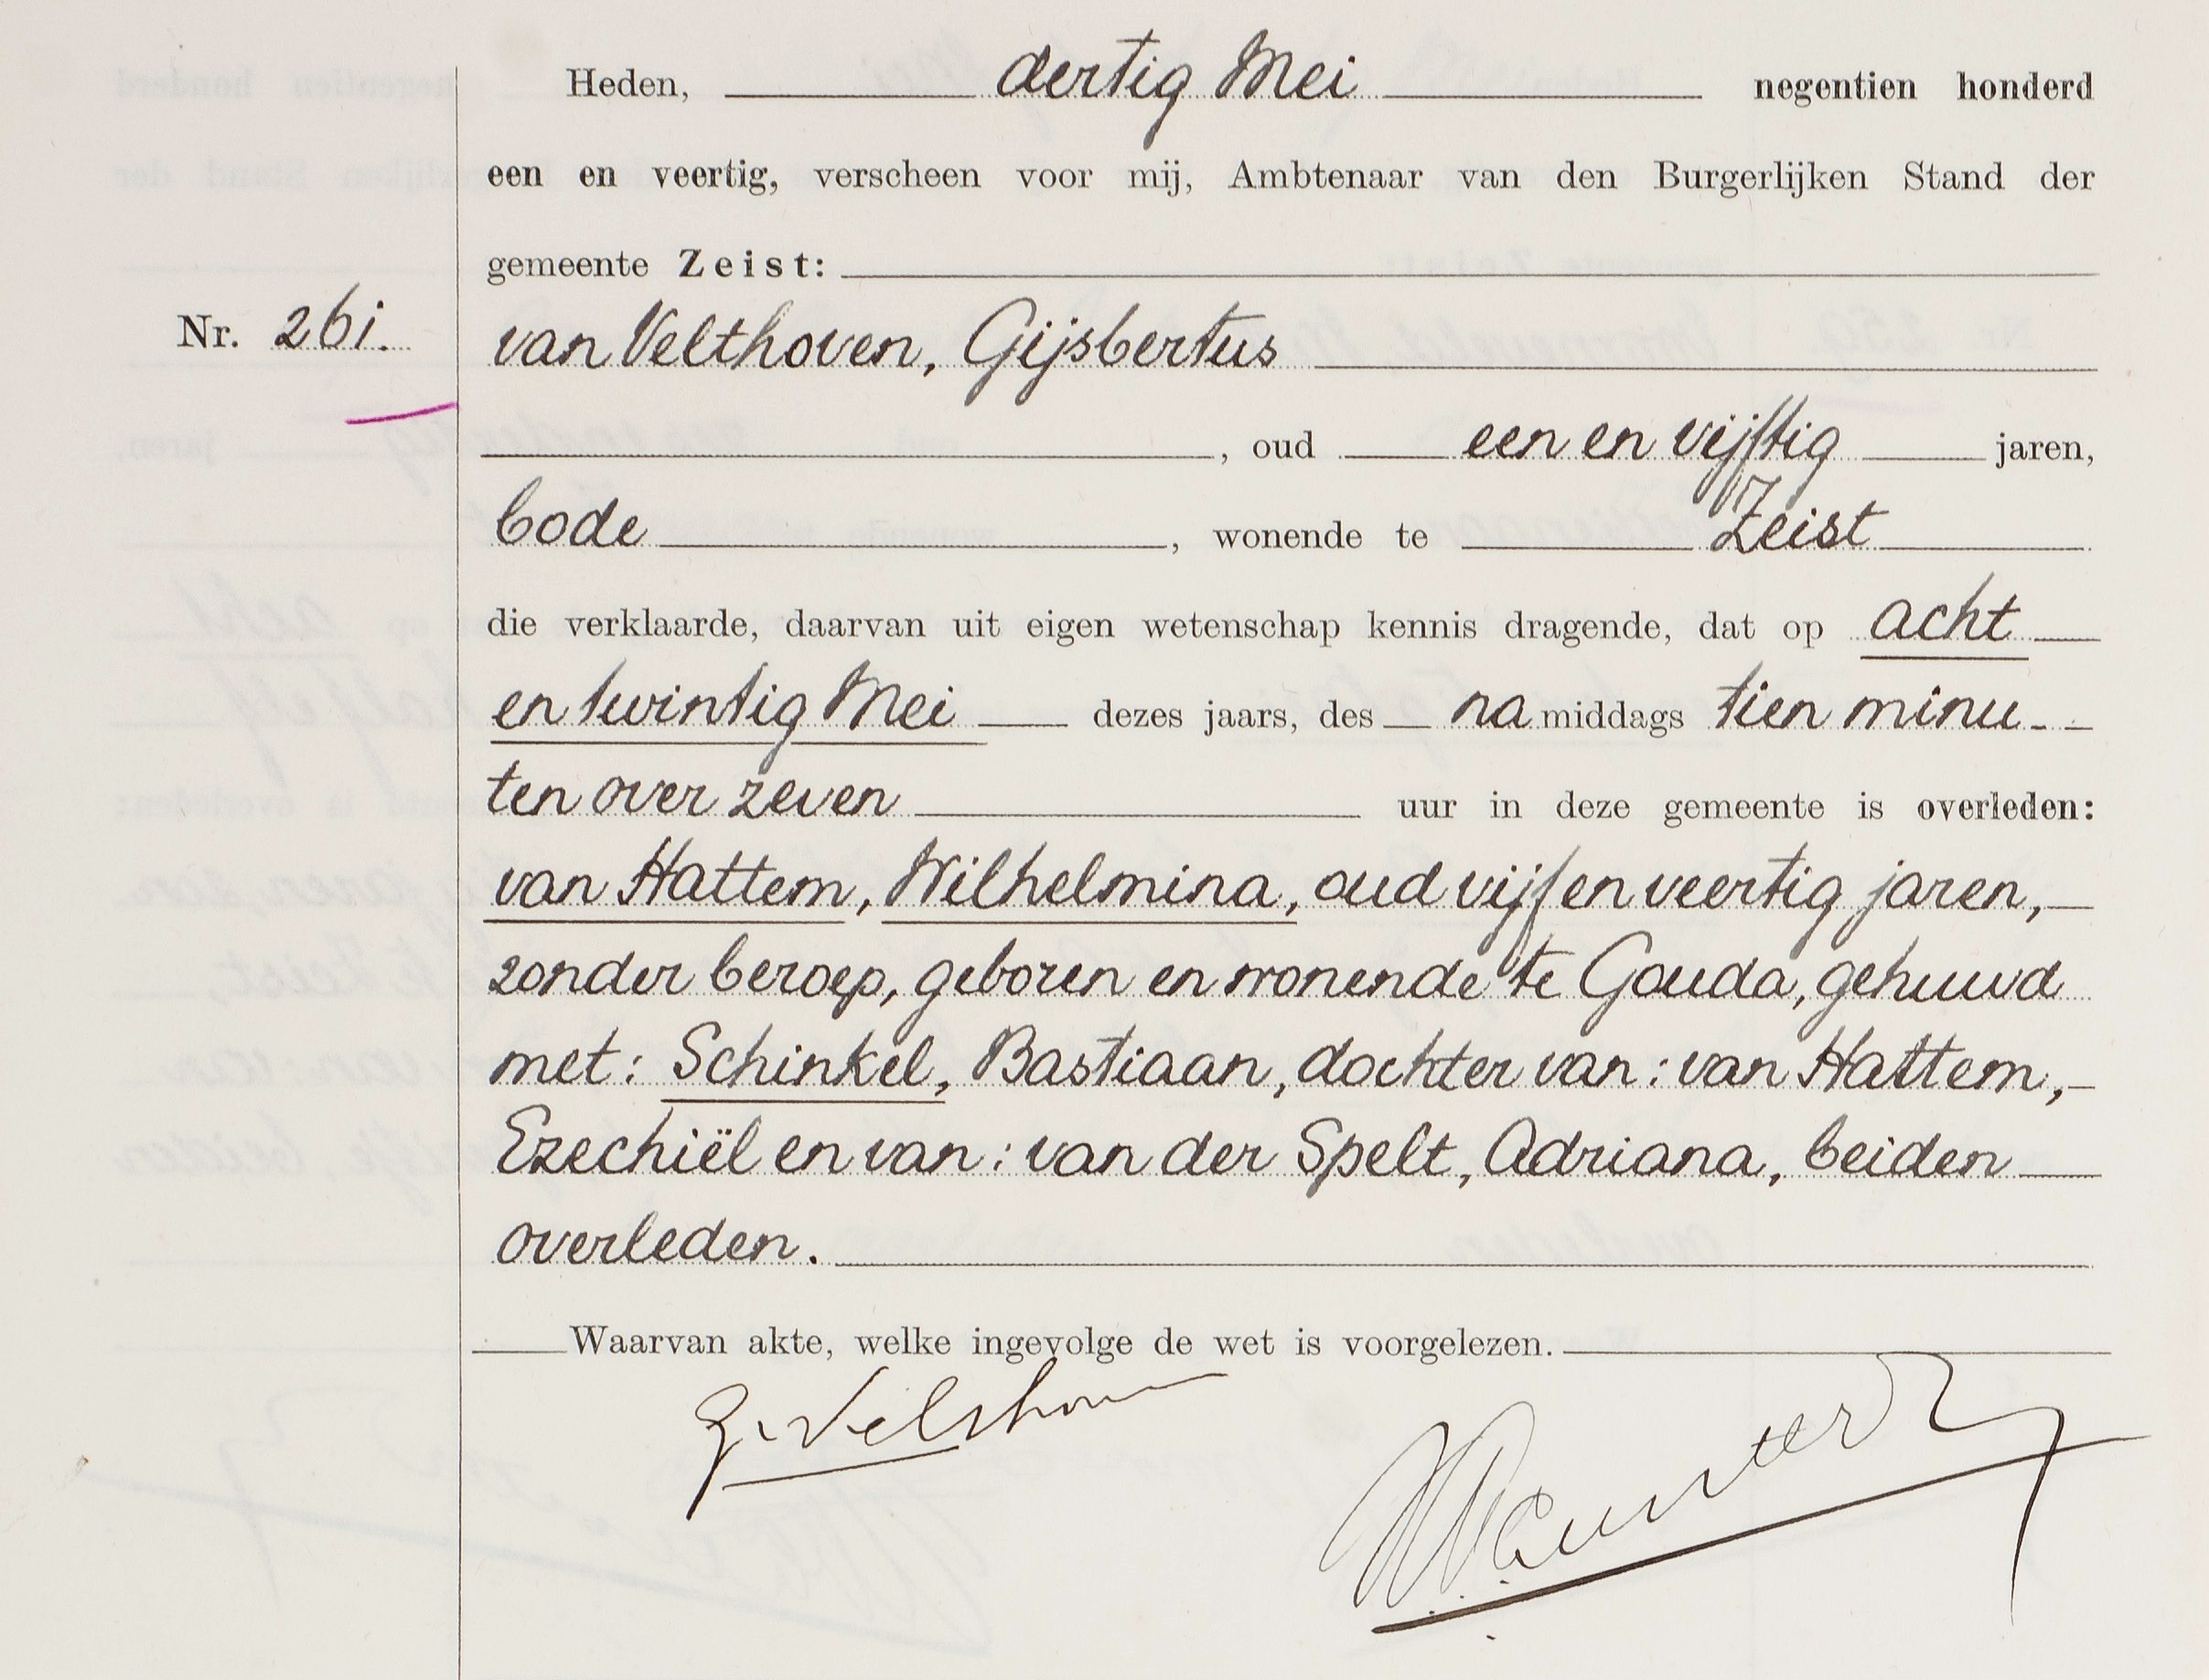 Heden, dertig Mei negentien honderd
een en veertig, verscheen voor mij, Ambtenaar van den Burgerlijken Stand der
gemeente Zeist:
Nr. 261.
van Velthoven, Gijsbertus
, oud een en vijftig jaren,
bode, wonende te Zeist
die verklaarde, daarvan uit eigen wetenschap kennis dragende, dat op acht
en twintig Mei dezes jaars, des namiddags tien minu-
ten over zeven uur in deze gemeente is overleden:
van Hattem, Wilhelmina, oud vijf en veertig jaren,
zonder beroep, geboren en wonende te Gouda, gehuwd
met: Schinkel, Bastiaan, dochter van: van Hattem,
Ezechiël en van: van der Spelt, Adriana, beiden
overleden.
Waarvan akte, welke ingevolge de wet is voorgelezen.